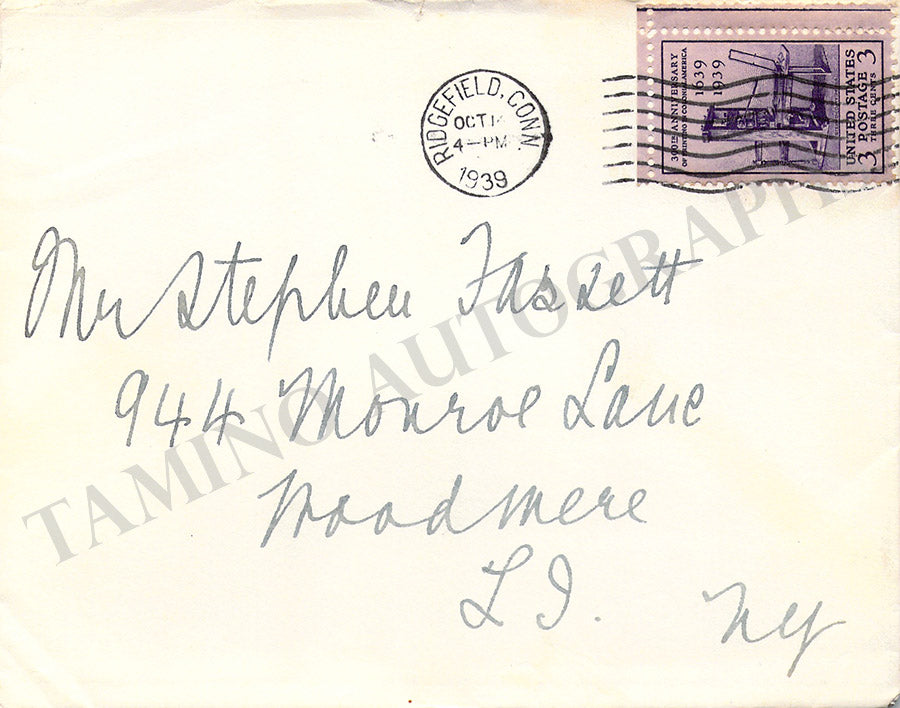 RIDGEFIELD, CONN
OCT 14
4-PM
1939
300TH ANNIVERSARY
OF PRINTING IN COLONIAL AMERICA
1639
1939
UNITED STATES
3 POSTAGE 3
THREE CENTS
Mr Stephen Fassett
944 Monroe Lane
Woodmere
L I. NY
TAMINO AUTOGRAPH